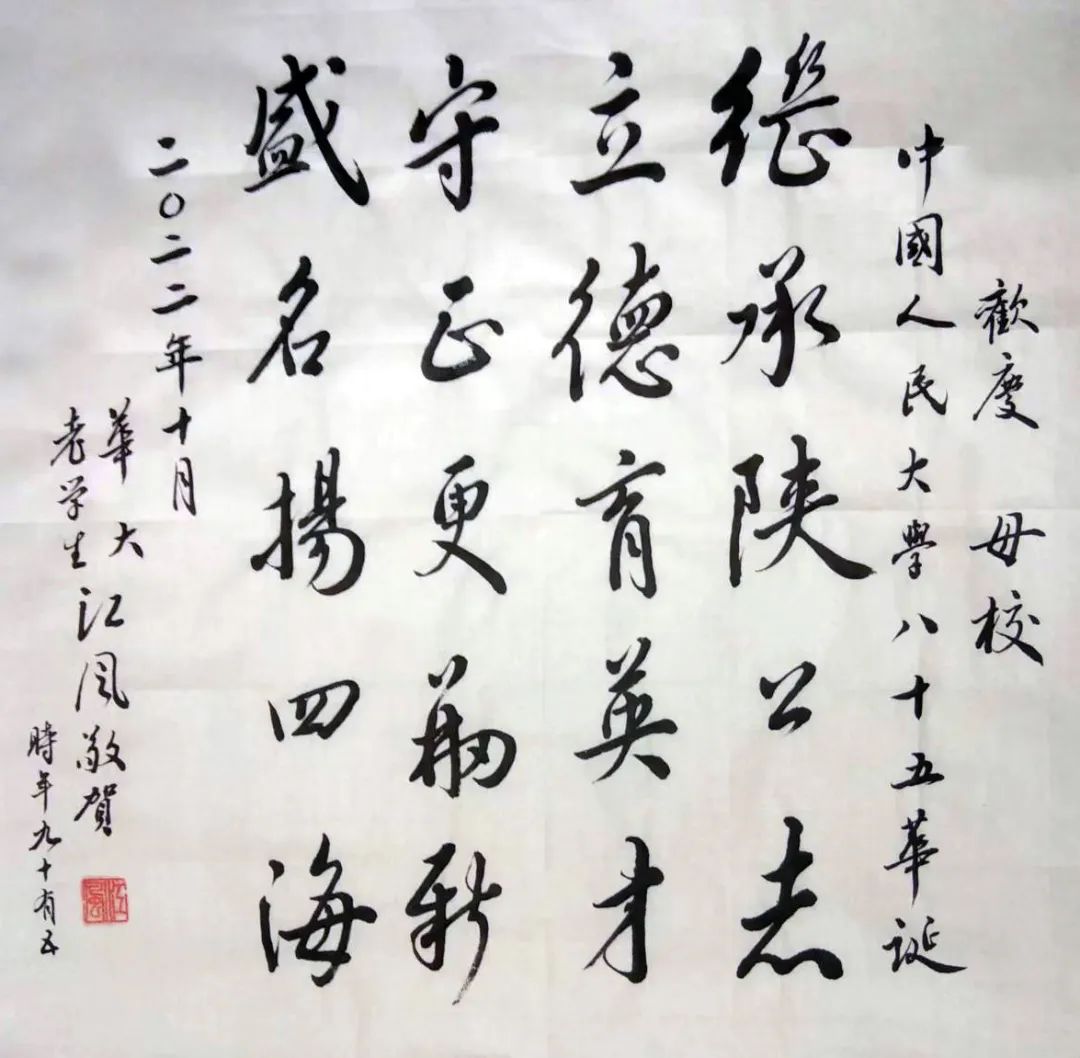 歡度 母校
中國人民大學八十五華誕
繼承陝公志
立德育英才
守正更勵新
盛名揚四海
二〇二二年十月
華大
老学生
江風敬賀
時年九十有五
江風